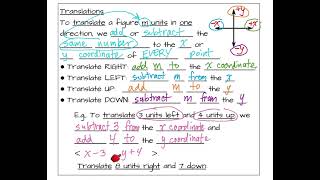 Translations
To translate a figure m units in one
direction, we add or subtract the
same number to the x or
y coordinate of EVERY point
+y
-x +x
-y
• Translate RIGHT: add m to the x coordinate
• Translate LEFT: subtract m from the x
• Translate UP add m to the y
• Translate DOWN: subtract m from the y
E.g. To translate 3 units left and 4 units up, we
subtract 3 from the x coordinate and
add 4 to the y coordinate
< x-3 y+4 >
Translate 8 units right and 7 down